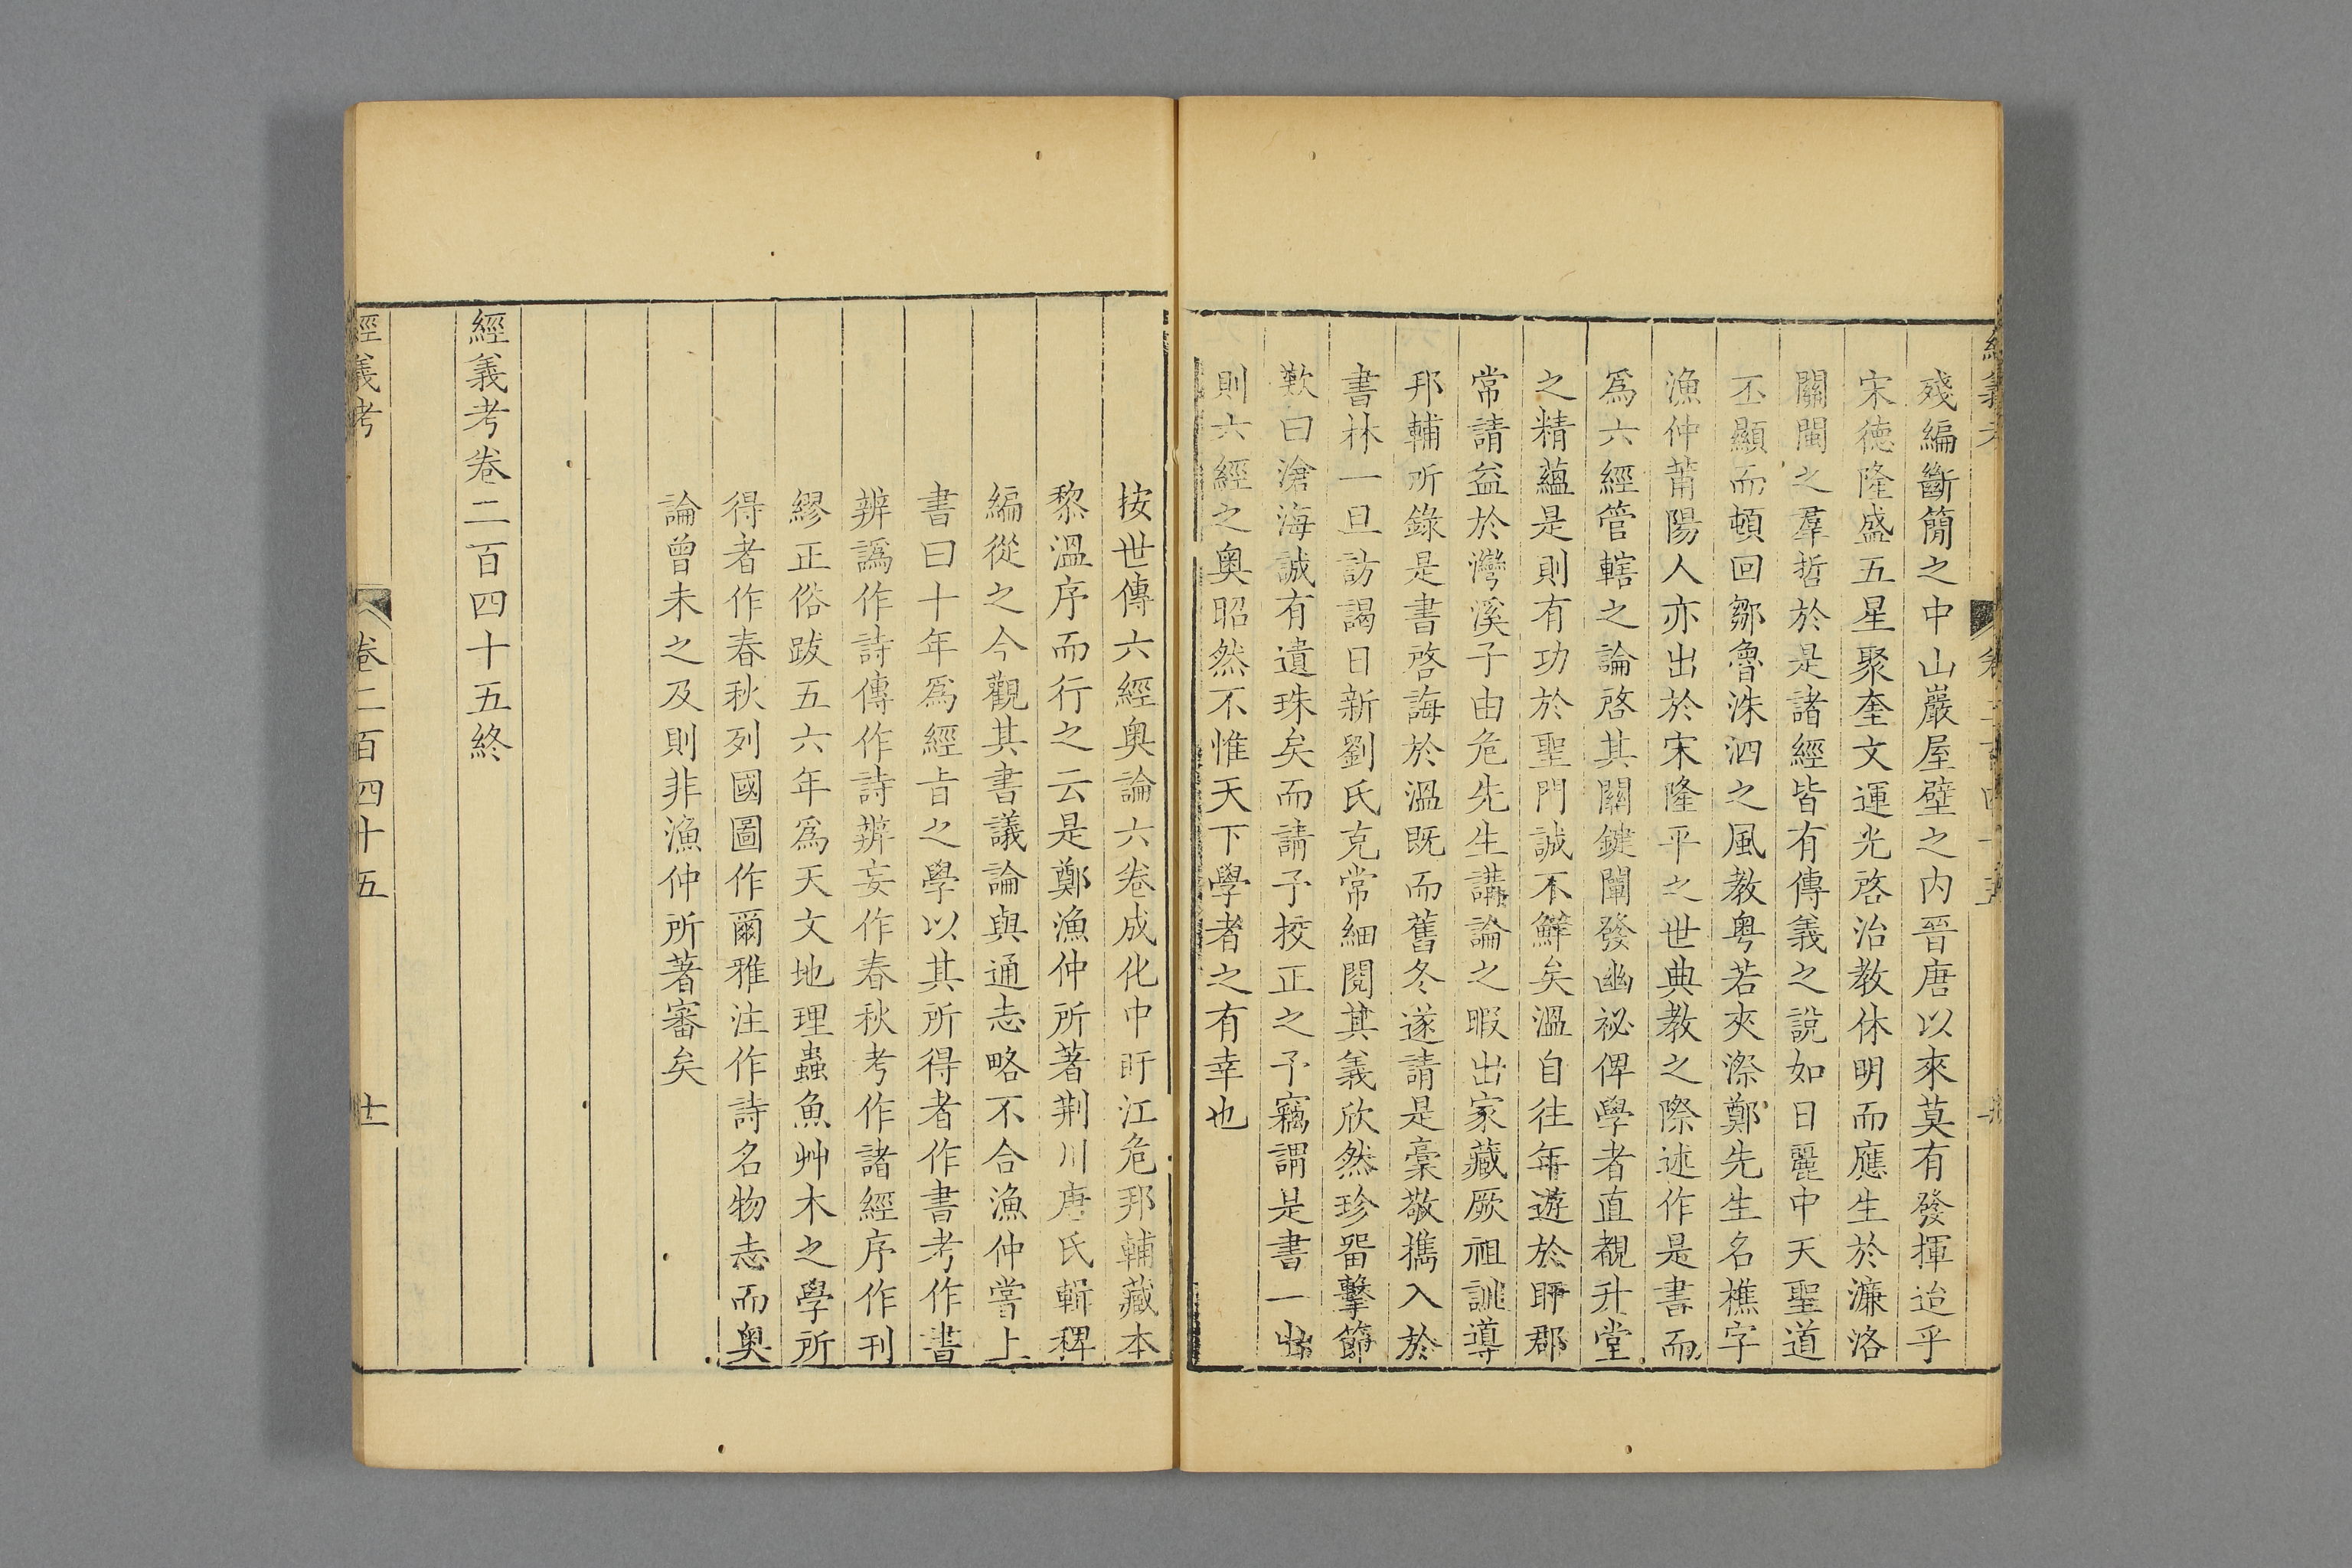 殘編斷簡之中山巖屋壁之内晉唐以來莫有發揮迨乎
宋德隆盛五星聚奎文運光啓治教休明而應生於濂洛
關閩之羣哲於是諸經皆有傳義之說如日麗中天聖道
丕顯而頓回鄒魯洙泗之風教粤若夾漈鄭先生名樵字
漁仲莆陽人亦出於宋隆平之世典教之際述作是書而
爲六經管轄之論啓其關鍵闡發幽祕俾學者直覩升堂
之精蘊是則有功於聖門誠不鮮矣溫自往年遊於盱郡
常請益於灣溪子由危先生講論之暇出家藏厥祖訓導
邦輔所錄是書啓誨於溫既而舊冬遂請是稾敬攜入於
書林一旦訪謁日新劉氏克常細閱其義欣然珍畱擊節
歎曰滄海誠有遺珠矣而請予挍正之予竊謂是書一出
則六經之奧昭然不惟天下學者之有幸也
按世傳六經奧論六卷成化中盱江危邦輔藏本
黎溫序而行之云是鄭漁仲所著荆川唐氏輯稗
編從之今觀其書議論與通志略不合漁仲嘗上
書曰十年爲經旨之學以其所得者作書考作書
辨譌作詩傳作詩辨妄作春秋考作諸經序作刊
繆正俗跋五六年爲天文地理蟲魚艸木之學所
得者作春秋列國圖作爾雅注作詩名物志而奧
論曾未之及則非漁仲所著審矣
經義考卷二百四十五終
經義考 卷二百四十五 十